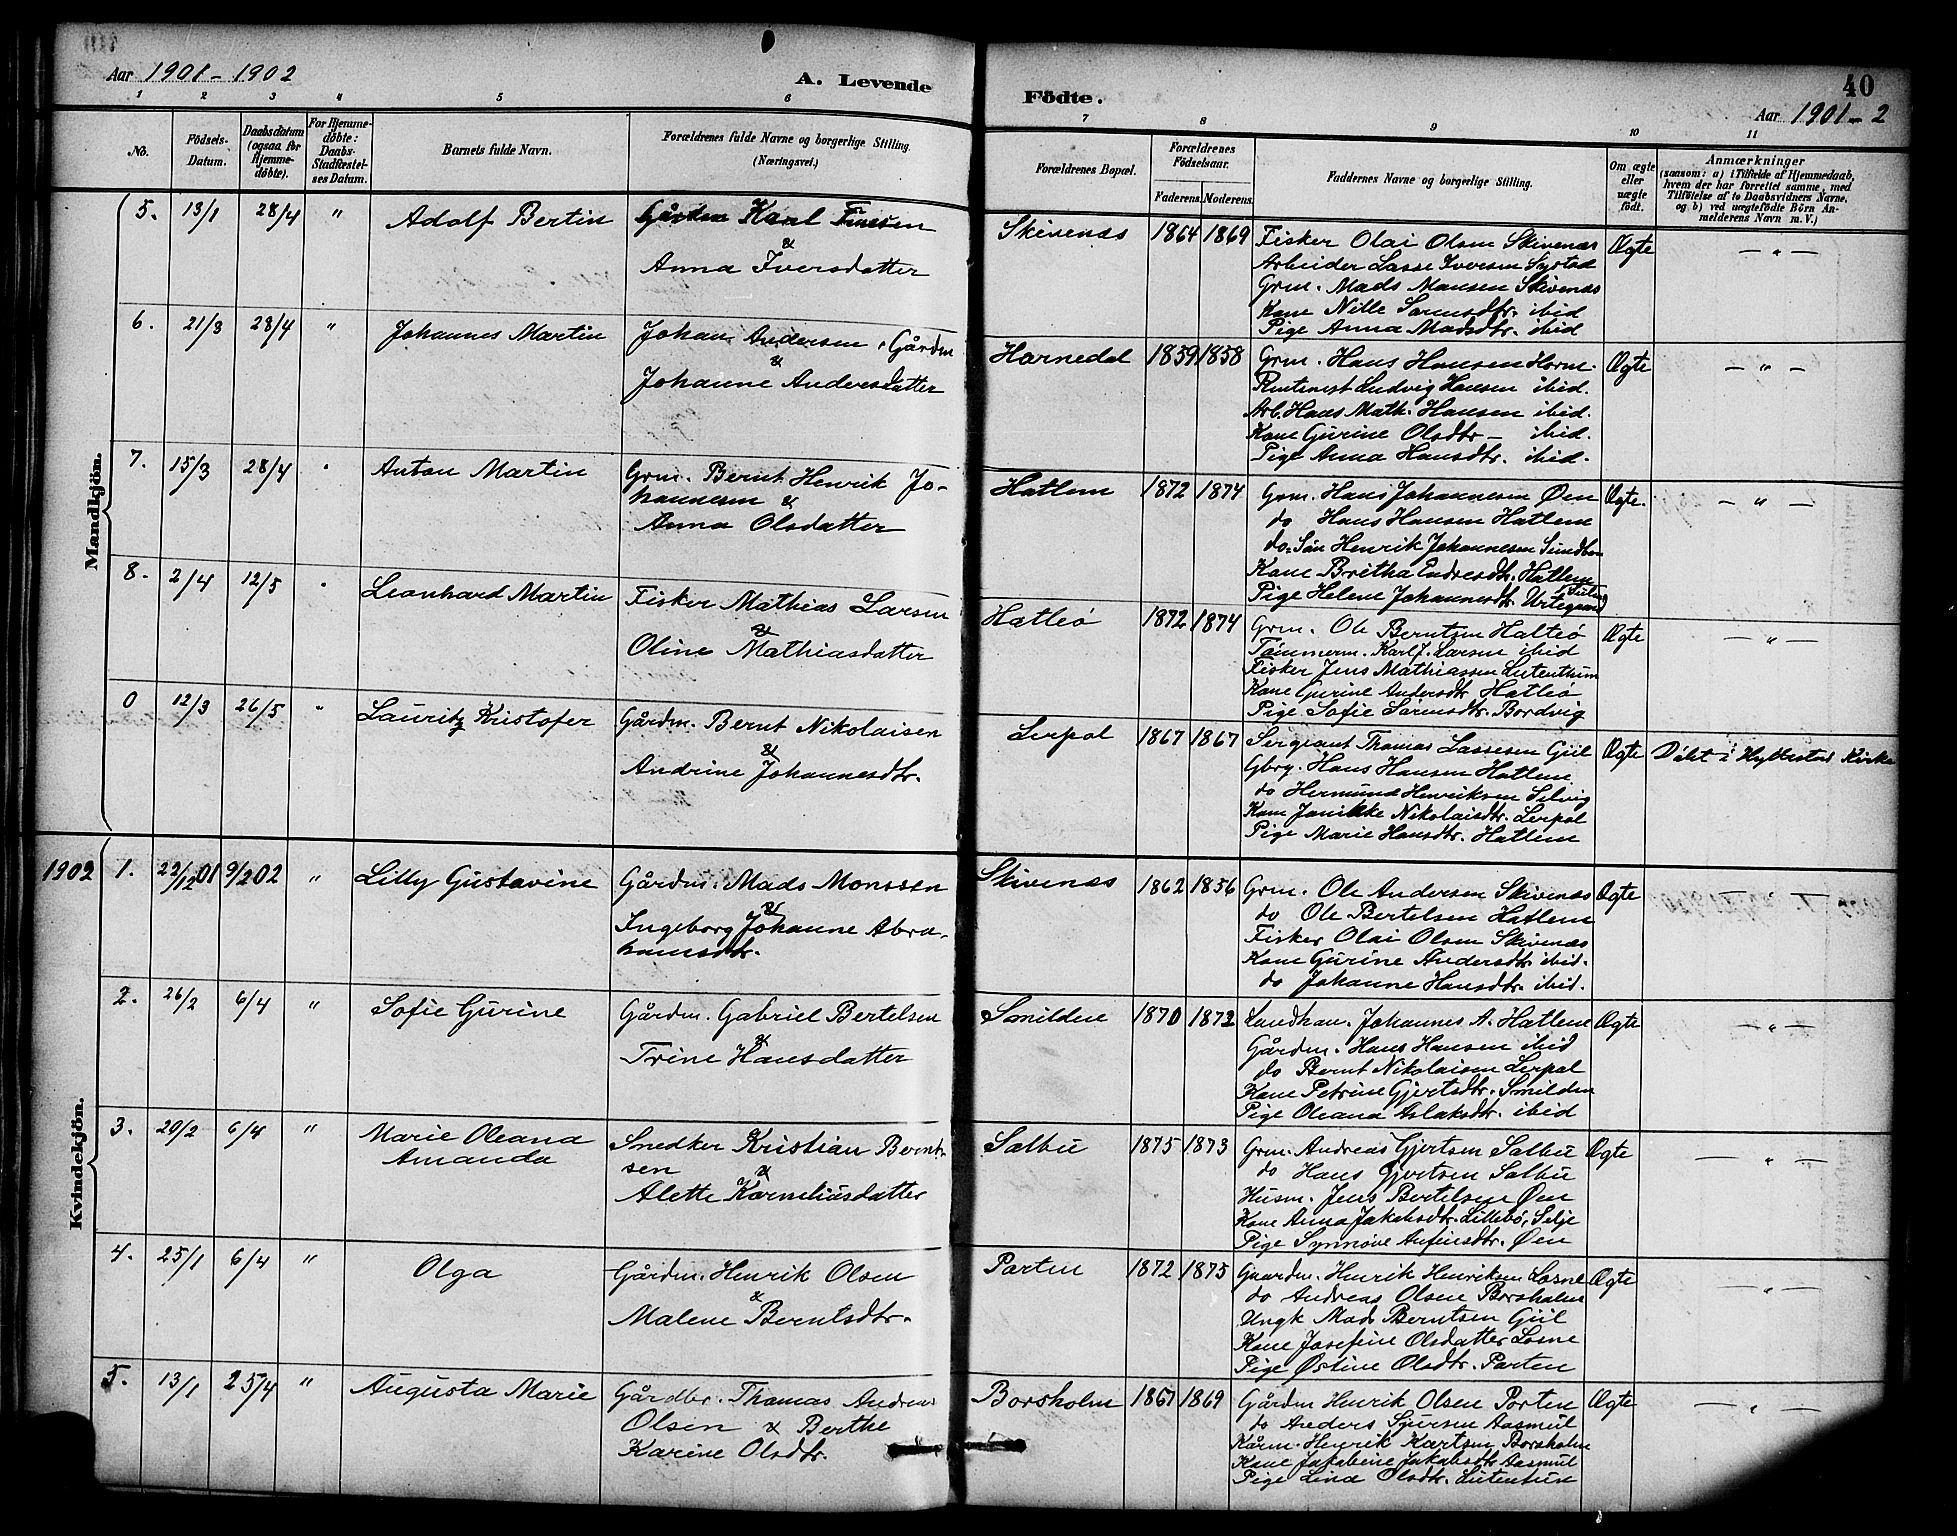 Aar 1901-1902
A. Levende
Födte.
40
Aar 1901-2
1 2 3 4 5 6 7 8 9 10 11
No.
Födsels-
Datum.
Daabsdatum
(ogsaa for
Hjemme-
döbte).
For Hjemme-
döbte:
Daabs-
Stadfæstel-
ses Datum.
Barnets fulde Navn.
Forældrenes fulde Navne og borgerlige Stilling.
(Næringsvei.)
Forældrenes Bopæl.
Forældrenes
Födselsaar.
Faderens. Moderens.
Faddernes Navne og borgerlige Stilling.
Om ægte
eller
uægte
födt.
Anmærkninger
(saasom: a) i Tilfælde af Hjemmedaab,
hvem der har forrettet samme, med
Tilföielse af to Daabsvidners Navne,
og b) ved uægtefödte Börn An-
melderens Navn m.V.)
Mandkjön.
5. 13/1 28/4 " Adolf Bertin
Gårdm Karl
&
Anna Iversdatter
Skivenæs 1864 1869
Fisker Olai Olsen Skivenæs
Arbeider Lasse Iversen Systad
Grm. Mads Monsen Skivenæs
Kone Nille Sørensdtr. ibid
Pige Anna Madsdtr. ibid
Ægte — " —
6. 21/3 28/4 " Johannes Martin
Johan Andersen, Gårdm
&
Johanne Andersdatter
Hornedal 1859 1858
Grm. Hans Hansen Horne.
Rentenist Ludvig Hansen ibid.
Arb. Hans Math. Hansen ibid.
Kone Gurine Olsdtr — ibid.
Pige Anna Hansdtr. ibid.
Ægte — " —
7. 15/3 28/4 " Anton Martin
Grm. Bernt Henrik Jo-
hannesen &
Anna Olsdatter
Hatlem 1872 1874
Grm. Hans Johannesen Øen
do Hans Hansen Hatlem
do. Søn Henrik Johannesen
Kone Britha Endresdtr. Hatlem
Pige Helene Johannesdtr.
Ægte. — " —
8. 2/4 12/5 " Leonhard Martin
Fisker Mathias Larsen
&
Oline Mathiasdatter
Hatleö 1872 1874
Grm. Ole Berntsen Hatleö
Tömmerm. Karl J. Larsen ibid
Fisker Jens Mathiassen Lutentun
Kone Gurine Andersdtr Hatleö
Pige Sofie Sørensdtr. Bordvig
Ægte — " —
0 12/3 26/5 " Lauritz Kristofer
Gårdm. Bernt Nikolaisen
&
Andrine Johannesdtr.
Lerpol 1867 1867
Sergeant Thomas Lassesen Giil
Gbrg. Hans Hansen Hatlem.
do Hermund Henriksen Selvig
Kone Janikke Nikolaisdtr. Lerpol
Pige Marie Hansdtr. Hatlem
Ægte Döbt i Hyllestad Kirke
Kvindekjön.
1902 1. 22/12 01 9/2 02 " Lilly Gustavine
Gårdm. Mads Monssen
&
Ingeborg Johanne Abra-
hamsdtr.
Skivenæs 1862 1856
Grm. Ole Andersen Skivenæs
do Ole Bertelsen Hatlem
Fisker Olai Olsen Skivenæs
Kone Gurine Andersdtr. ibid.
do Johanne Hansdtr. ibid.
Ægte — " —
2. 26/2 6/4 " Sofie Gurine
Gårdm. Gabriel Bertelsen
&
Trine Hansdatter
Smilden 1870 1872
Landhan. Johannes A. Hatlem
Gårdm. Hans Hansen ibid
do Bernt Nikolaisen Lerpol
Kone Petrine Gjertsdtr. Smilden
Pige Oleana Aslaksdtr. ibid
Ægte — " —
3. 20/2 6/4 " Marie Oleana
Amanda
Snedker Kristian Bernt-
sen &
Alette Korneliusdatter
Salbu 1875 1873
Grm. Andreas Gjertsen Salbu
do Hans Gjertsen Salbu
Husm. Jens Bertelsen Øen
Kone Anna Jakobsdtr. Lillebö, Selje
Pige Synnöve Anfinsdtr. Øen
Ægte — " —
4. 25/1 6/4 " Olga
Gårdm. Henrik Olsen
&
Malene Berntsdtr.
Porten 1872 1875
Gaardm. Henrik Henriksen Losne
do Andreas Olsen Borsholm
Ungk Mads Berntsen Giil
Kone Josefine Olsdatter Losne
Pige Østine Olsdtr. Porten
Ægte — " —
5. 13/1 25/4 " Augusta Marie
Gårdbr. Thomas Andreas
Olsen & Berthe
Karine Olsdtr.
Borsholm 1867 1869
Gårdm Henrik Olsen Porten
do Anders Sjursen Aasmul
Kårm. Henrik Kartsen Borsholm
Kone Jakobine Jakobsdtr Aasmul
Pige Lina Olsdtr. Lutentun
Ægte — " —